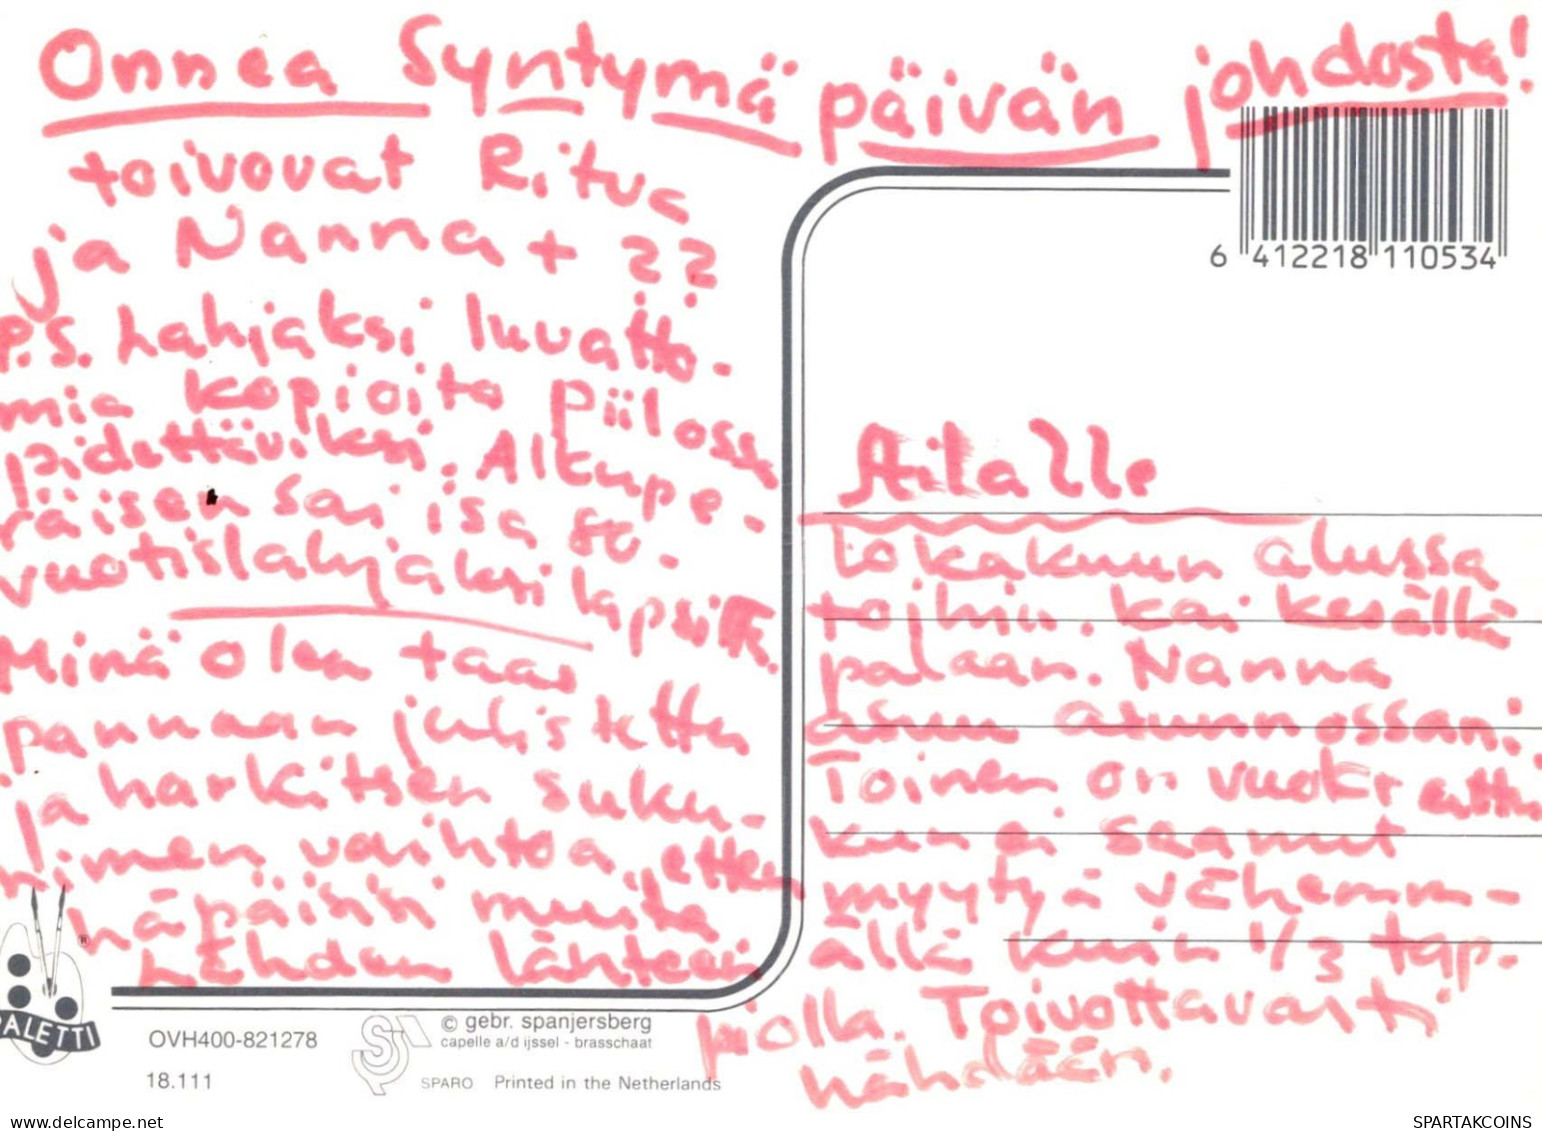 Onnea Syntymä päivän johdosta!
toivovat Ritva
ja Nanna + ??
P.S. Lahjaksi luvatto-
mia kopioita piilossa
pidettäviksi. Alkupe-
räisen sai isä 80-
vuotislahjaksi lapsilta.
Minä olen taas
pannaan julistettu
ja harkitsen suku-
nimen vaihtoa etten
häpäisisi muita
Lehdon lähteen
Aitalle
Lokakuun alussa
toihin. kai kesällä
palaan. Nanna
asuu asunnossani.
Toinen on vuokrattu
kun ei saanut
myytyä vähemm-
ällä kuin 1/3 tap-
piolla. Toivottavasti
nähdään.
6 412218 110534
PALETTI
®
OVH400-821278
18.111
© gebr. spanjersberg
capelle a/d ijssel - brasschaat
SPARO Printed in the Netherlands
www.delcampe.net
SPARTAKCOINS